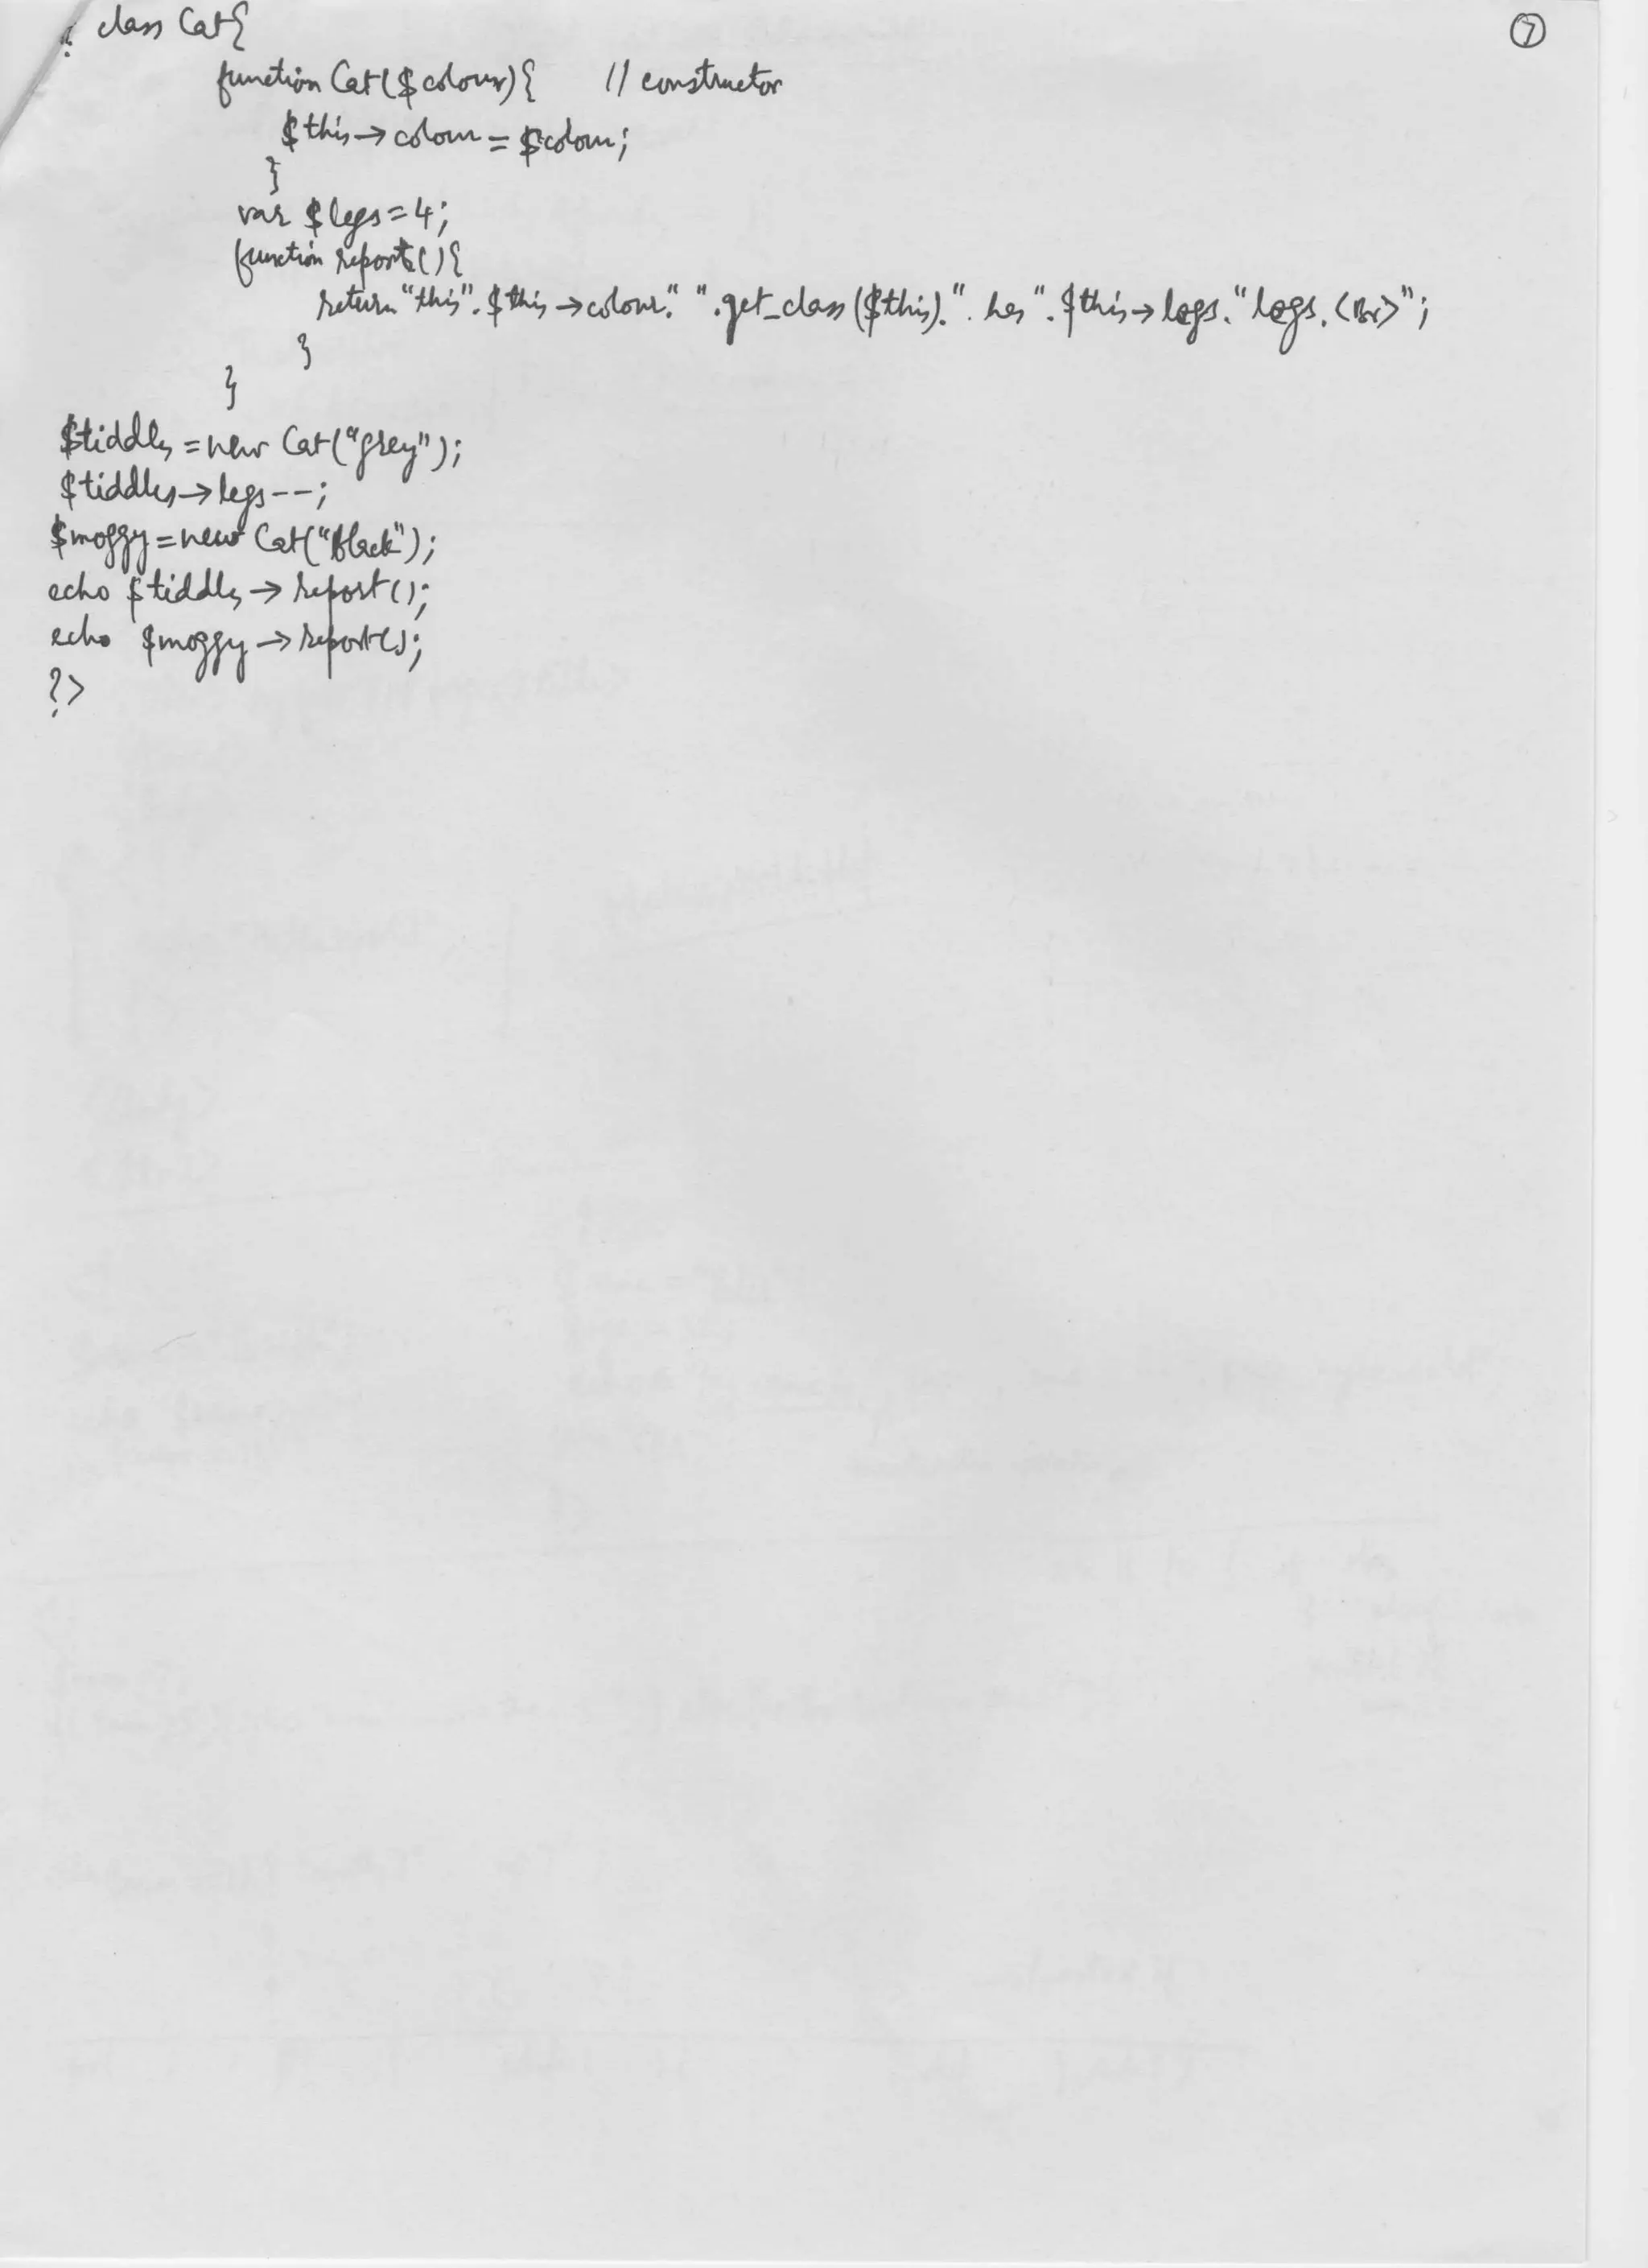 class Cat{ ⑦
function Cat($colour){ // constructor
$this→colour=$colour;
}
var $legs=4;
function report(){
return "this".$this→colour." ".get_class($this).". has".$this→legs."legs.<Br>";
}
}
$tiddles=new Cat("grey");
$tiddles→legs--;
$moggy=new Cat("Black");
echo $tiddles→report();
echo $moggy→report();
?>